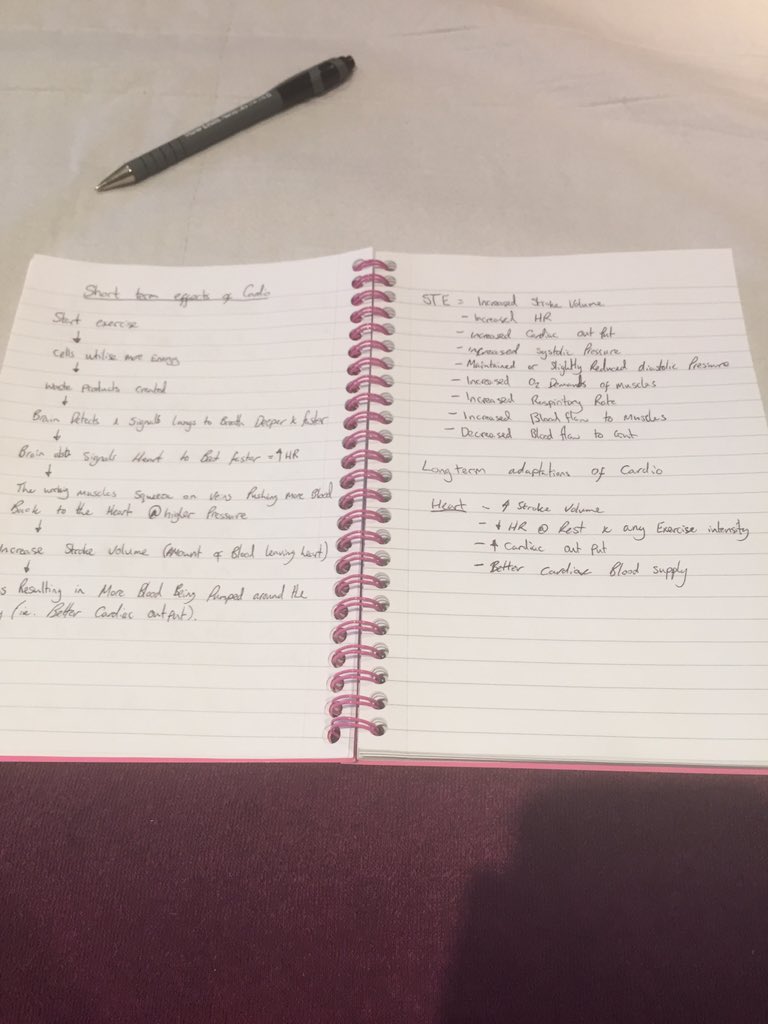 Short term effects of Cardio
Start exercise
↓
Cells utilise more Energy
↓
waste products created
↓
Brain Detects & Signals Lungs to Breath Deeper & faster
↓
Brain also Signals Heart to Beat faster = ↑ HR
↓
The working muscles Squeeze on Veins Pushing More Blood
Back to the Heart @ higher Pressure
↓
Increase Stroke Volume (Amount of Blood leaving heart)
↓
Resulting in More Blood Being Pumped around the
(ie. Better Cardiac output).
STE = Increased Stroke Volume
- Increased HR
- increased Cardiac out put
- increased Systolic Pressure
- Maintained or Slightly Reduced diastolic Pressure
- Increased O2 Demands of muscles
- Increased Respiritory Rate
- Increased Blood flow to Muscles
- Decreased Blood flow to Gut
Long term adaptations of Cardio
Heart - ↑ Stroke Volume
- ↓ HR @ Rest & any Exercise intensity
- ↑ Cardiac out put
- Better Cardiac Blood supply